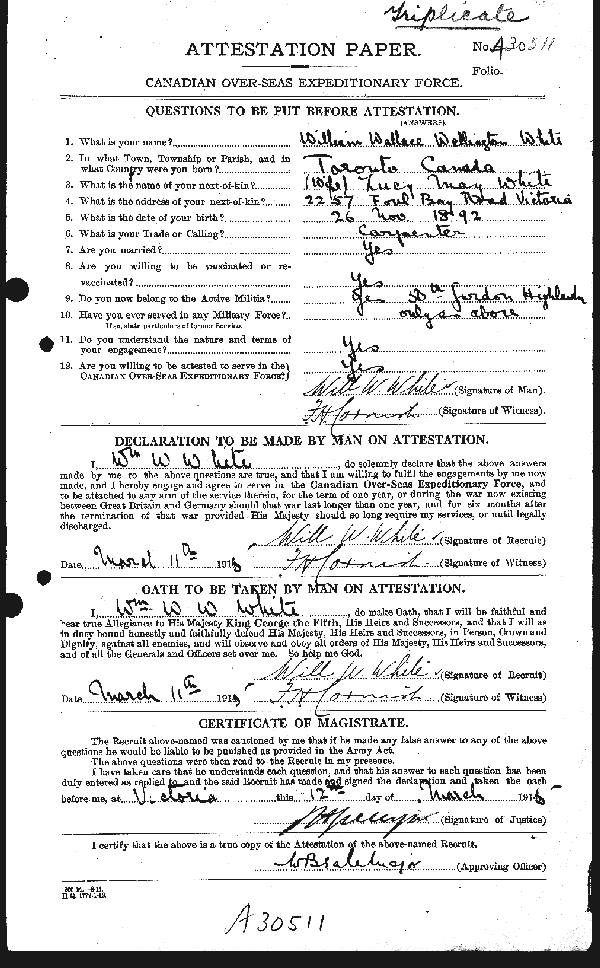 Triplicate
ATTESTATION PAPER.
No. A30511
Folio.
CANADIAN OVER-SEAS EXPEDITIONARY FORCE.
QUESTIONS TO BE PUT BEFORE ATTESTATION.
(ANSWERS)
1. What is your name? William Wallace Wellington White
2. In what Town, Township or Parish, and in
what Country were you born? Toronto Canada
3. What is the name of your next-of-kin? (Wife) Lucy May White
4. What is the address of your next-of-kin? 2257 Foul Bay Road Victoria
5. What is the date of your birth? 26 Nov. 1892
6. What is your Trade or Calling? Carpenter
7. Are you married? Yes
8. Are you willing to be vaccinated or re-
vaccinated? Yes
9. Do you now belong to the Active Militia? Yes 50th Gordon Highlands
10. Have you ever served in any Military Force? only as above
If so, state particulars of former Service.
11. Do you understand the nature and terms of
your engagement? Yes
12. Are you willing to be attested to serve in the Yes
CANADIAN OVER-SEAS EXPEDITIONARY FORCE?
Will W. White (Signature of Man).
F H Cornish (Signature of Witness).
DECLARATION TO BE MADE BY MAN ON ATTESTATION.
I, Wm W W White, do solemnly declare that the above answers
made by me to the above questions are true, and that I am willing to fulfil the engagements by me now
made, and I hereby engage and agree to serve in the Canadian Over-Seas Expeditionary Force, and
to be attached to any arm of the service therein, for the term of one year, or during the war now existing
between Great Britain and Germany should that war last longer than one year, and for six months after
the termination of that war provided His Majesty should so long require my services, or until legally
discharged.
Will W. White (Signature of Recruit)
Date, March 11th 1915 F H Cornish (Signature of Witness)
OATH TO BE TAKEN BY MAN ON ATTESTATION.
I, Wm W W White, do make Oath, that I will be faithful and
bear true Allegiance to His Majesty King George the Fifth, His Heirs and Successors, and that I will as
in duty bound honestly and faithfully defend His Majesty, His Heirs and Successors, in Person, Crown and
Dignity, against all enemies, and will observe and obey all orders of His Majesty, His Heirs and Successors,
and of all the Generals and Officers set over me. So help me God.
Will W White (Signature of Recruit)
Date March 11th 1915 F H Cornish (Signature of Witness)
CERTIFICATE OF MAGISTRATE.
The Recruit above-named was cautioned by me that if he made any false answer to any of the above
questions he would be liable to be punished as provided in the Army Act.
The above questions were then read to the Recruit in my presence.
I have taken care that he understands each question, and that his answer to each question has been
duly entered as replied to, and the said Recruit has made and signed the declaration and taken the oath
before me, at Victoria this 12th day of March 1915
(Signature of Justice)
I certify that the above is a true copy of the Attestation of the above-named Recruit.
(Approving Officer)
A30511